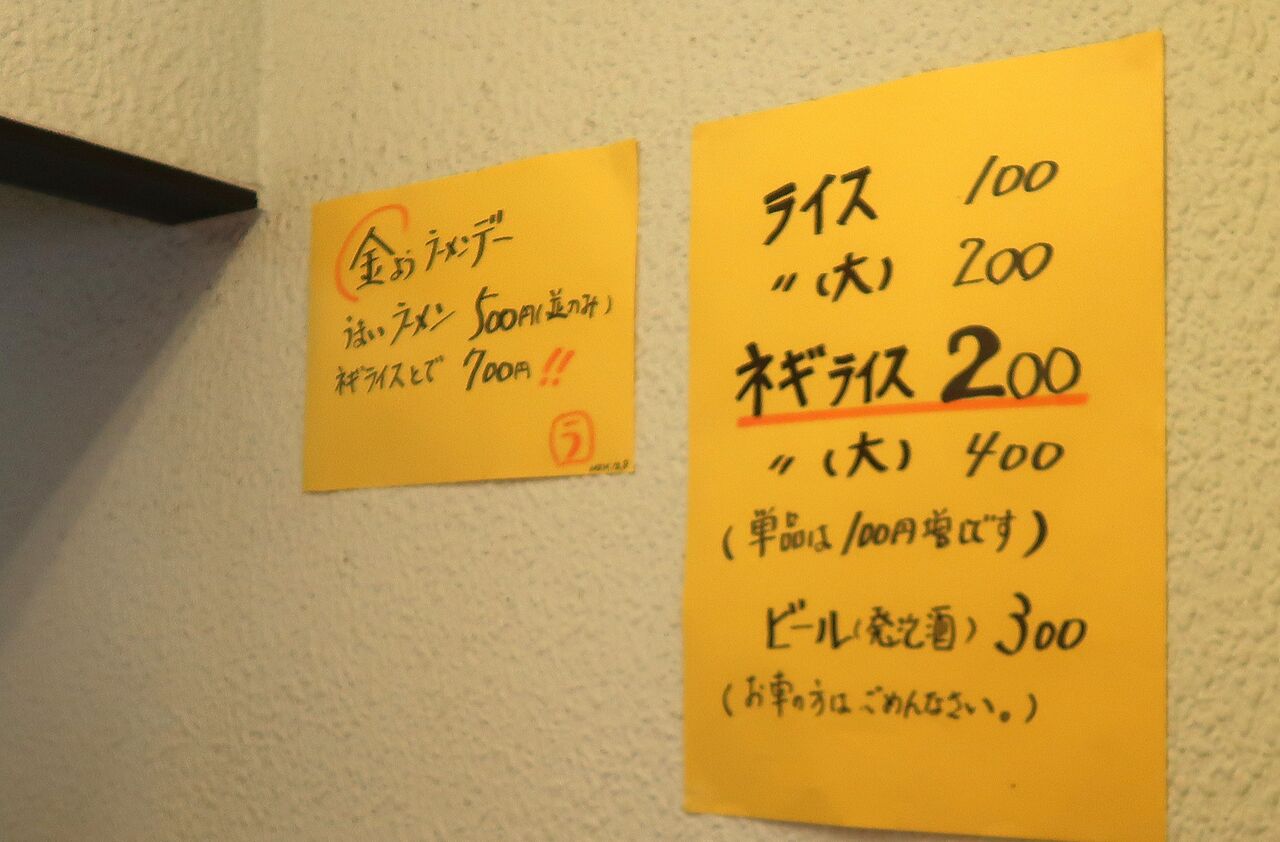 金ようラーメンデー
うまいラーメン 500円(並のみ)
ネギライスとで 700円!!
ラ
ライス 100
〃(大) 200
ネギライス 200
〃(大) 400
(単品は100円増しです)
ビール(発泡酒) 300
(お車の方はごめんなさい。)